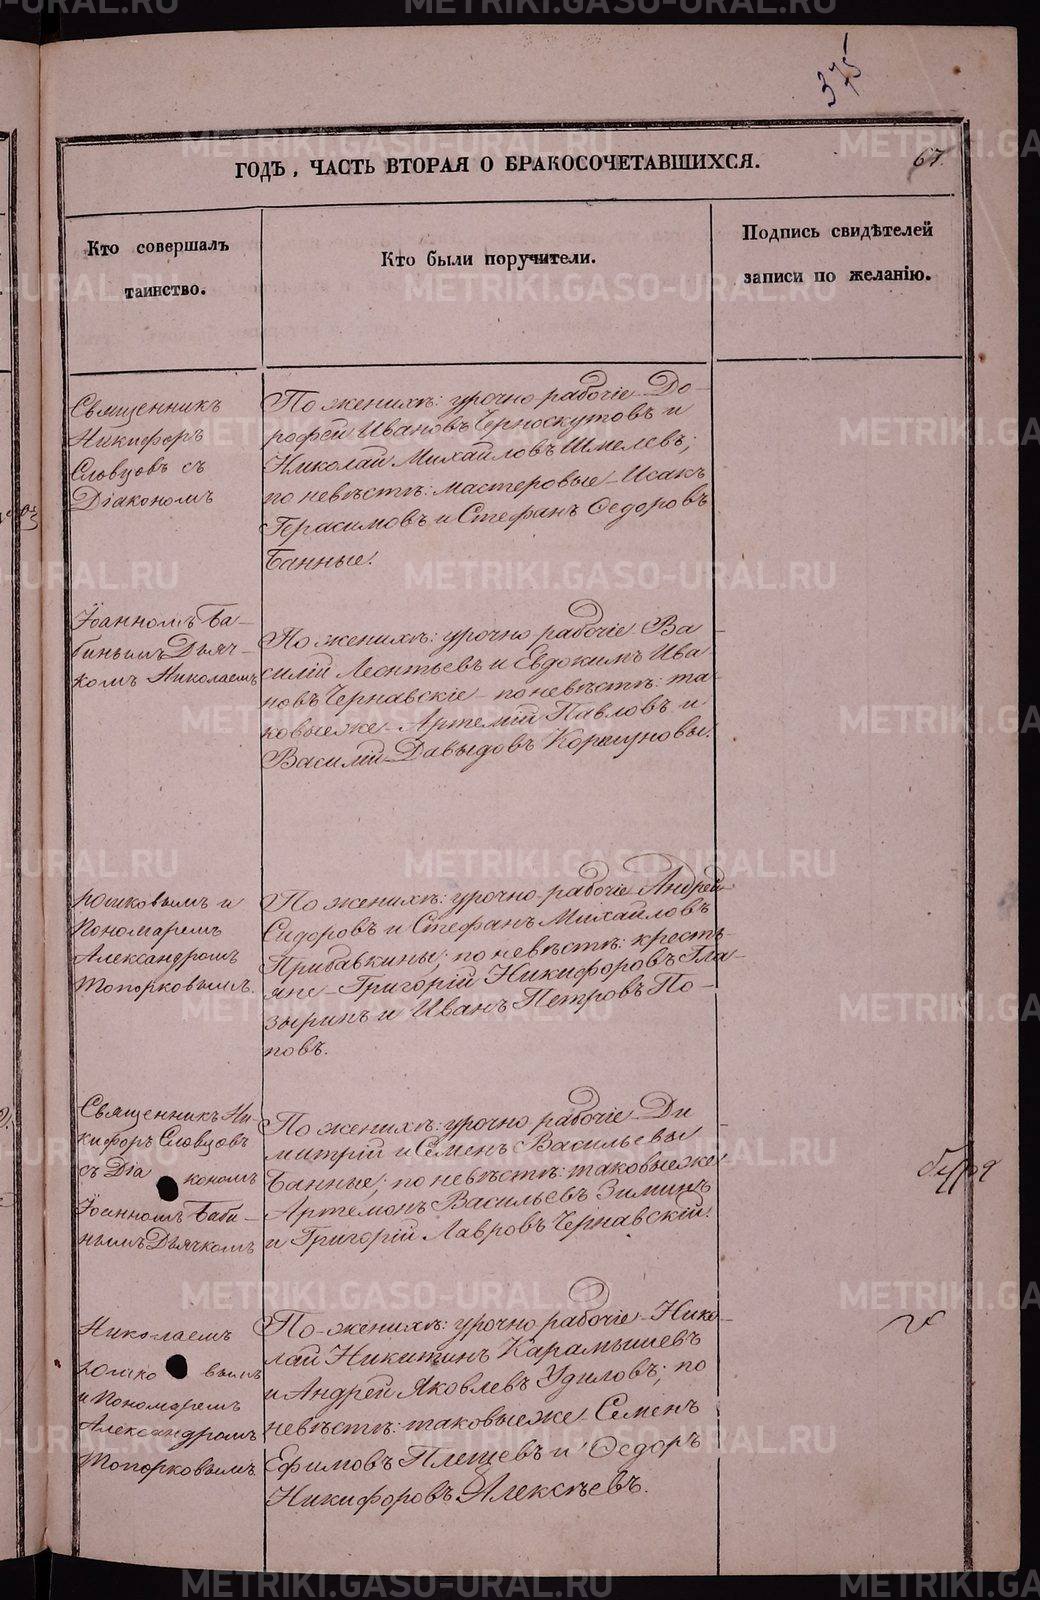 375
67.
ГОДѢ, ЧАСТЬ ВТОРАЯ О БРАКОСОЧЕТАВШИХСЯ.
Кто совершалъ
таинство.
Кто были поручители.
Подпись свидѣтелей
записи по желанію.
Священникъ
Никифоръ
Словцовъ съ
Діакономъ
По женихѣ: урочно рабочіе До-
рофей Ивановъ Черноскутовъ и
Николай Михайловъ Шмелевъ;
по невѣстѣ: мастеровые Исакъ
Герасимовъ и Стефанъ Ѳедоровъ
Банные.
Іоанномъ Ба-
бинымъ Дьяч-
комъ Николаемъ
По женихѣ: урочно рабочіе Ва-
силій Леонтьевъ и Евдокимъ Ива
новъ Чернавскіе по невѣстѣ: та-
ковые же Артемій Павловъ и
Василій Давыдовъ Коршуновы.
рошковымъ и
Пономаремъ
Александромъ
Топорковымъ.
По женихѣ: урочно рабочіе Андрей
Сидоровъ и Стефанъ Михайловъ
Прибавкины; по невѣстѣ: кресть-
яне Григорій Никифоровъ Гла-
зыринъ и Иванъ Петровъ По-
повъ.
Священникъ Ни-
кифоръ Словцовъ
съ Діа кономъ
Іоанномъ Баби-
нымъ Дьячкомъ
По женихѣ: урочно рабочіе Ди
митрій и Семенъ Васильевы
Банные; по невѣстѣ: таковые же
Артемонъ Васильевъ Зиминъ
и Григорій Лавровъ Чернавскій.
Николаемъ
рошко вымъ
и Пономаремъ
Александромъ
Топорковымъ.
По женихѣ: урочно рабочіе Нико-
лай Никитинъ Карамышевъ
и Андрей Яковлевъ Удиловъ; по
невѣстѣ: таковые же Семенъ
Ефимовъ Плещевъ и Ѳедоръ
Никифоровъ Алексѣевъ.
METRIKI.GASO-URAL.RU